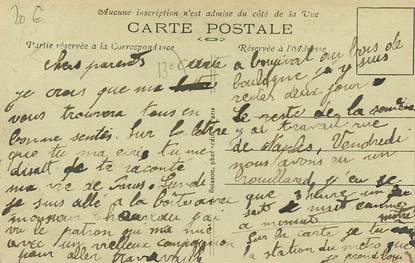 20 €
Aucune inscription n'est admise du côté de la Vue
CARTE POSTALE
Partie réservée à la Correspondance
Réservée à l'Adresse
chers parents
je crois que ma carte
vous trouvera tous en
bonne santés. Sur la lettre
que tu ma ecrie tu me
disait de te raconté
ma vie de Paris. Lundi
je suis allé a la boite avec
monsieur j'ai
vu le patron qui ma mie
avec un vieilleux compagnon
pour aller travailler
a bougival au bois de
boulogne je y suis
rester deux jour
Le reste de la semaine
y ai travail rue
de Naples, Vendredi
nous avons eu un
brouillard
que 3 heure
sait le nuit comme
a minuit
Sur la carte je tu
la station du metro que
je prend tous